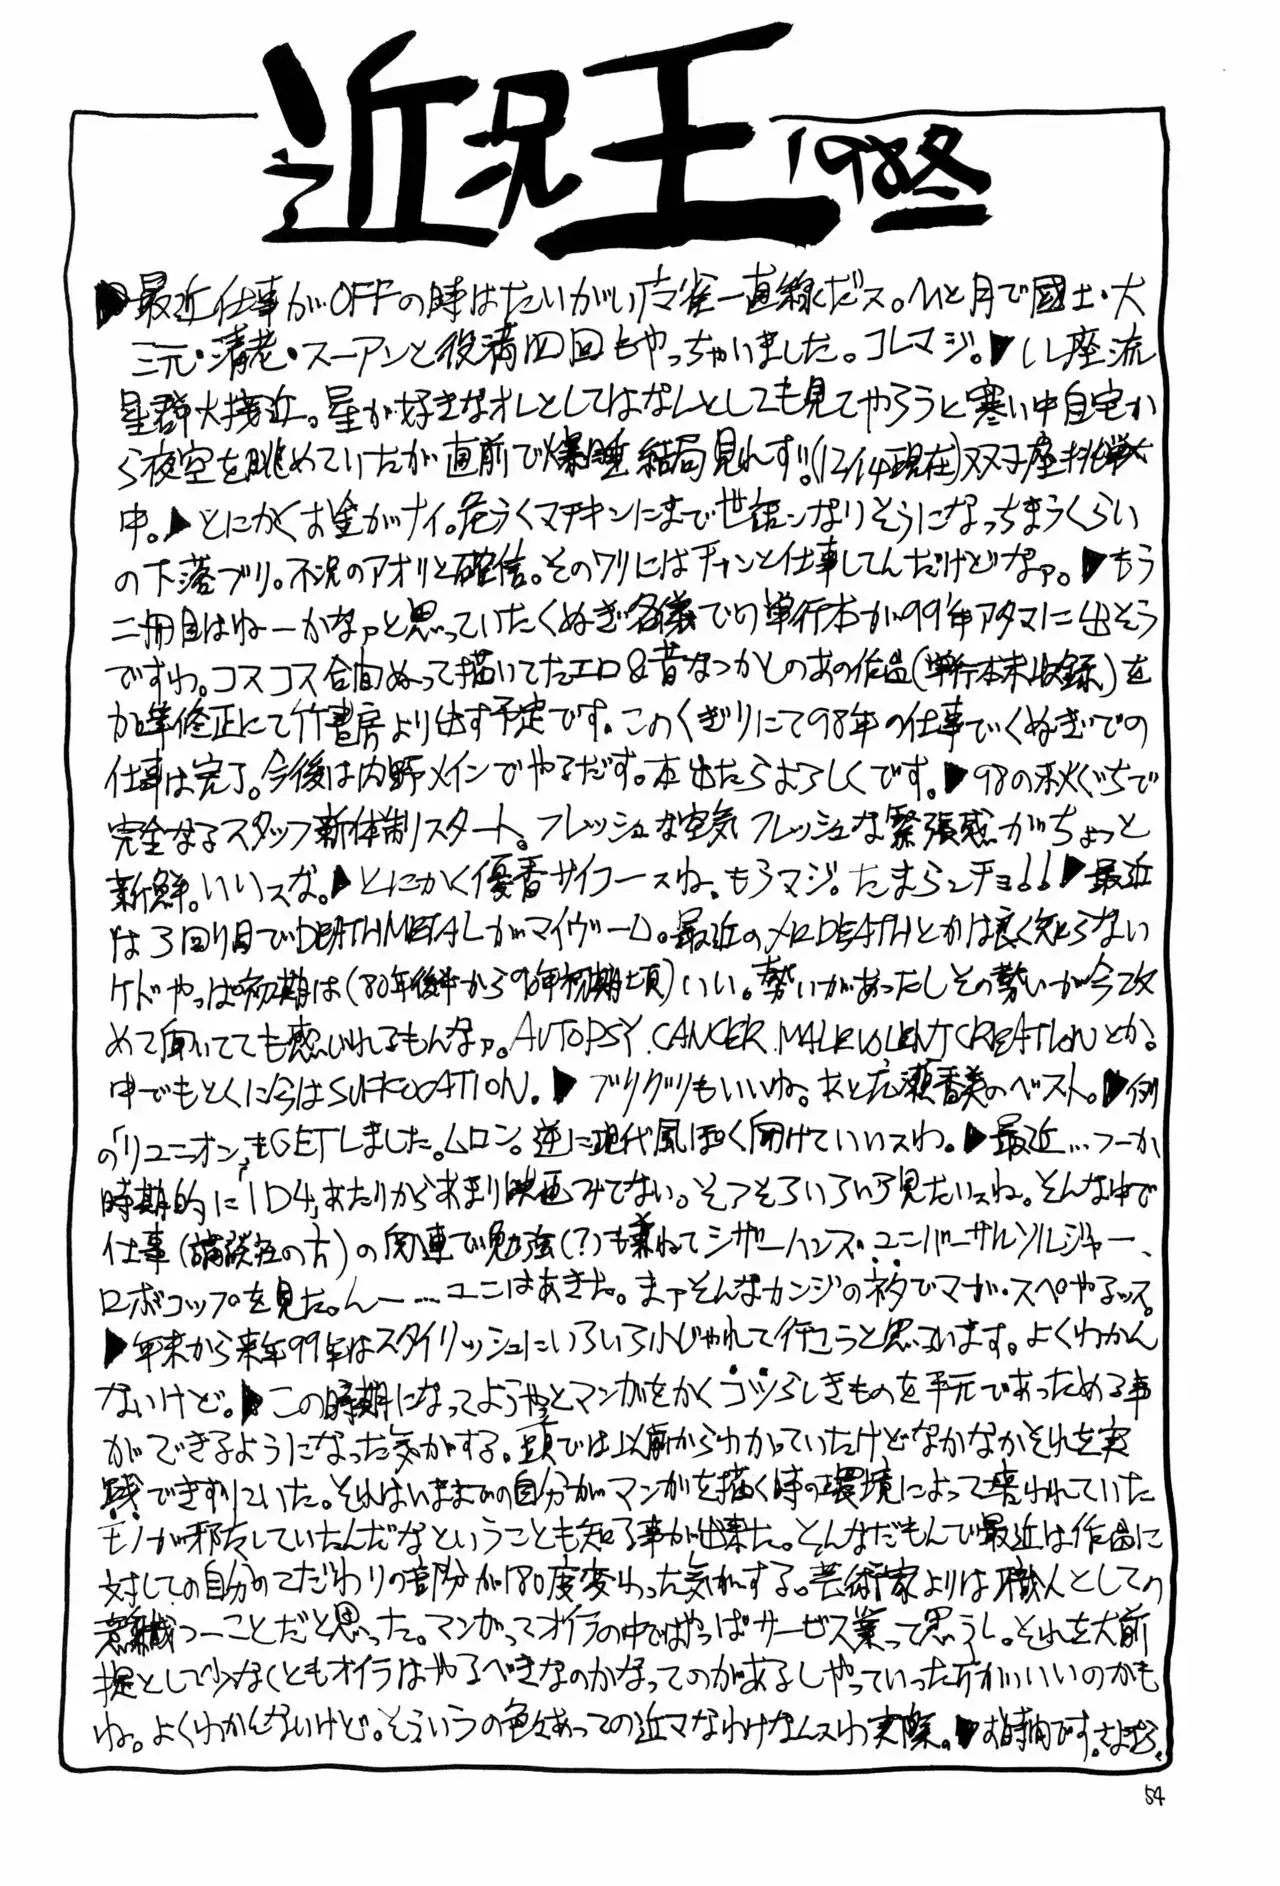 近況王 '98冬
▶最近仕事がOFFの時はたいがい麻雀一直線だス。ひと月で國士・大
三元・清老・スーアンと役満四回もやっちゃいました。コレマジ。▶しし座流
星群大接近。星が好きなオレとしてはなんとしても見てやろうと寒い中自宅か
ら夜空を眺めていたが直前で爆睡 結局見れず!!(12/14現在)双子座挑戦
中。▶とにかくお金がナイ。危うくマチキンにまで世話ンなりそうになっちまうくらい
の下落ブリ。不況のアオリと確信。そのワリにはチャンと仕事してんだけどなァ。▶もう
二冊目はねーかなァと思っていたくぬぎ名義での単行本が99年アタマに出そう
ですわ。コスコス合間ぬって描いてたエロ&昔なつかしのあの作品(単行本未収録)を
加筆修正にて竹書房より出す予定です。このくぎりにて98年の仕事でくぬぎでの
仕事は完了。今後は内野メインでやるだす。本出たらよろしくです。▶98の秋ぐちで
完全なるスタッフ新体制スタート。フレッシュな空気フレッシュな緊張感がちょっと
新鮮。いいスな。▶とにかく優香サイコースね、もうマジ。たまらンチョ!!▶最近
は3回り目でDEATHMETALがマイヴーム。最近のメロDEATHとかは良く知らない
ケドやっぱ初期は(80年後半から90年初期頃)いい。勢いがあったしその勢いが今改
めて聞いてても感じれるもんなァ。AUTOPSY.CANCER.MALEVOLENTCREATIONとか。
中でもとくに今はSUFFOCATION.▶ブリグリもいいね。あと広瀬香美のベスト。▶例
の「リユニオン」もGETしました。ムロン。逆に現代風ぽく聞けていいスわ。▶最近…つーか
時期的に「ID4」あたりからあまり映画みてない。そろそろいろいろ見たいスね。そんな中で
仕事(講談社の方)の関連で勉強(?)も兼ねてシザーハンズ・ユニバーサルソルジャー、
ロボコップを見た。んー……ユニはあきた。まァそんなカンジのネタでマガ・スペやるッス。
▶年末から来年99年はスタイリッシュにいろいろ小じゃれて行こうと思っています。よくわかん
ないけど。▶この時期になってようやっとマンガをかくコツらしきものを手元であっためる事
ができるようになった気がする。頭では以前からわかっていたけどなかなかそれを実
践できずにいた。それはいままでの自分がマンガを描く時の環境によって培われていた
モノが邪魔していたんだなということも知る事が出来た。そんなだもんで最近は作品に
対しての自分のこだわりの部分が180度変わった気がする。芸術家よりは職人としての
意識っつーことだと思った。マンガってオイラの中ではやっぱサービス業って思うし。それを大前
提として少なくともオイラはやるべきなのかなってのがあるしやっていった方がいいのかも
ね。よくわかんないけど。そういうの色々あっての近マなわけなんスわ実際。▶お時間です。さよなら。
54